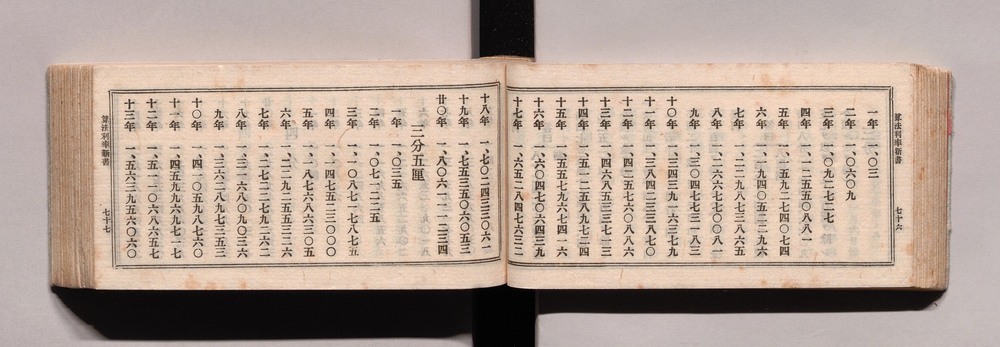 算法利率新書　七十六
一年　一、〇三
二年　一、〇六〇九
三年　一、〇九二七二七
四年　一、一二五五〇八八一
五年　一、一五九二七四〇七四
六年　一、一九四〇五二二九六
七年　一、二二九八七三八六五
八年　一、二六六七七〇〇八一
九年　一、三〇四七七三一八三
十〇年　一、三四三九一六三七九
十一年　一、三八四二三三八七〇
十二年　一、四二五七六〇八八六
十三年　一、四六八五三三七一三
十四年　一、五一二五八九七二四
十五年　一、五五七九六七四一六
十六年　一、六〇四七〇六四三九
十七年　一、六五二八四七六三二
十八年　一、七〇二四三三〇六一
十九年　一、七五三五〇六〇五三
廿〇年　一、八〇六一一一二三四
三分五厘
一年　一、〇三五
二年　一、〇七一二二五
三年　一、一〇八七一七八七五
四年　一、一四七五二三〇〇〇
五年　一、一八七六八六三〇五
六年　一、二二九二五五三二六
七年　一、二七二二七九二六二
八年　一、三一六八〇九〇三六
九年　一、三六二八九七三五三
十〇年　一、四一〇五九八七六〇
十一年　一、四五九九六九七一七
十二年　一、五一一〇六八六五七
十三年　一、五六三九五六〇六〇
算法利率新書　七十七